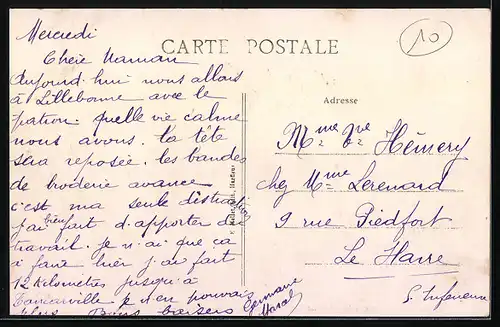 Mercredi
CARTE POSTALE
10
Chère Maman
Aujourd'hui nous allons
à Lillebonne avec le
patron. quelle vie calme
nous avons. ta tête
sera reposée. les bandes
de broderie avance
c'est ma seule distraction
j'ai bien fait d'apporter du
travail. je n'ai que ça
à faire hier j'ai fait
12 kilomètres jusqu'à
Tancarville je n'en pouvais
plus Bons baisers
Germaine
Adresse
Mme Vve Hémery
chez Mme Lerenard
9 rue Piedfort
Le Havre
S. Inférieure